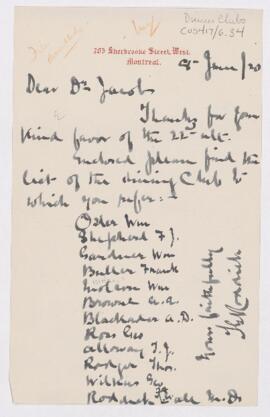 Dinner Clubs
CUS417/6.34
205 Sherbrooke Street, West.
Montreal.
9th June/20
Dear Dr Jacobs
Thanks for your
kind favor of the 22nd ult.
Enclosed please find the
list of the dining Club to
which you refer:-
Osler Wm
Shepherd F.J.
Gardner Wm
Buller Frank
Molson Wm
Browne A.A.
Blackader A.D.
Ross Geo
Alloway T.J.
Rodger Thos.
Wilkins Geo
Roddick T.G. all M.Ds
Yours faithfully
Roddick